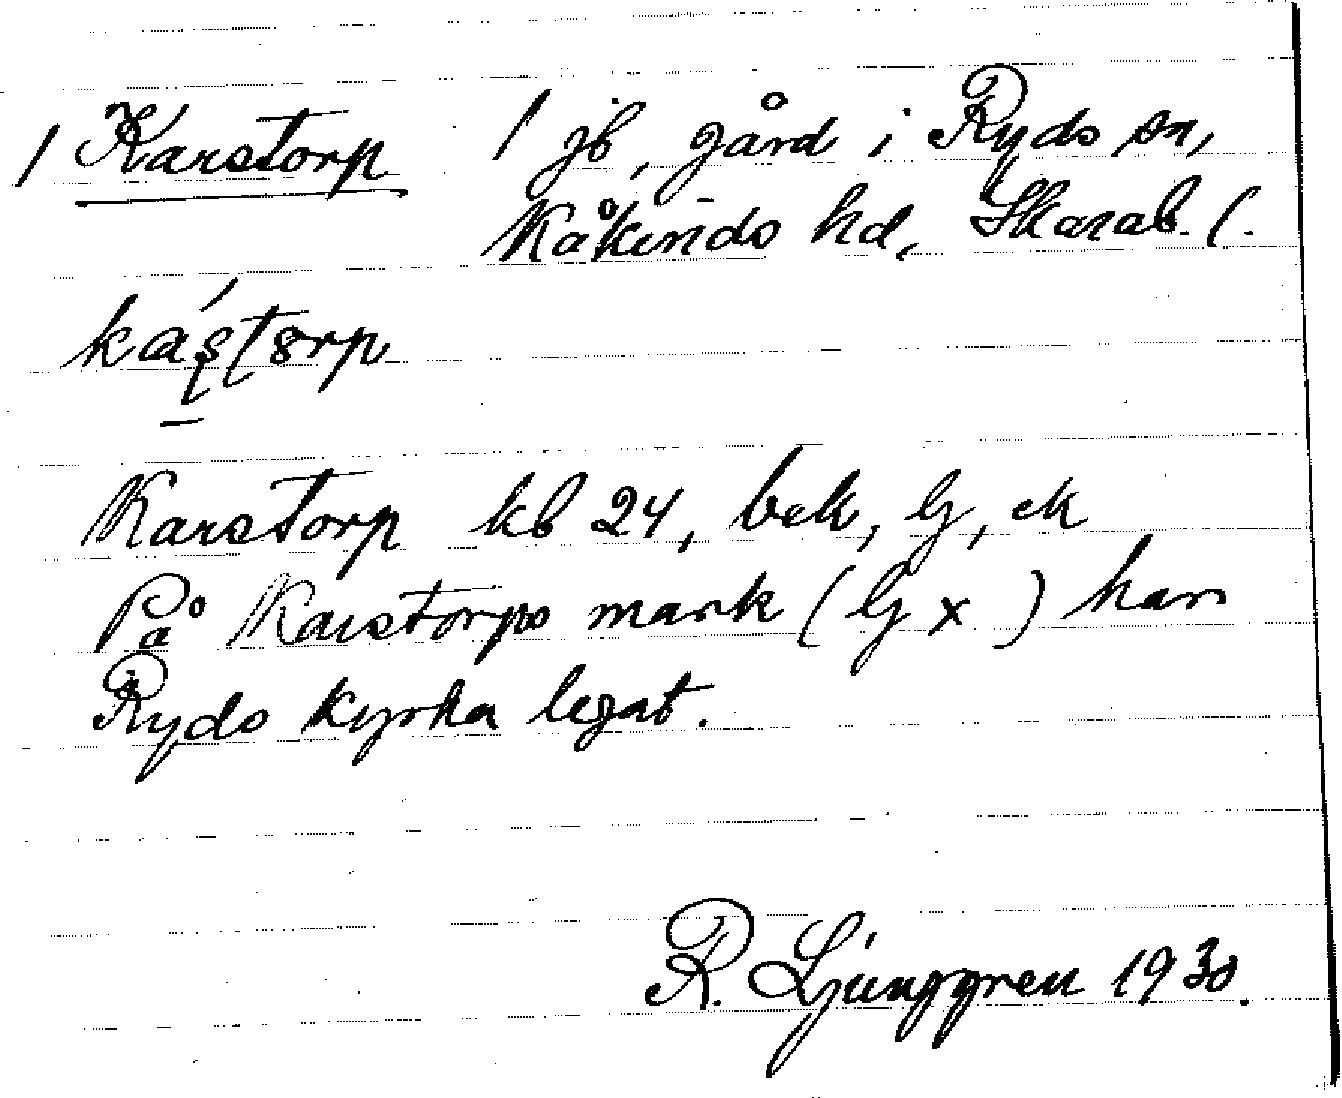 / Karstorp / jb, gård i Ryds sn,
Kåkinds hd, Skarab. l.
Karstorp kb 24, bek, lj, ek
På Karstorps mark (lj x) har
Ryds kyrka legat.
R. Ljunggren 1930.